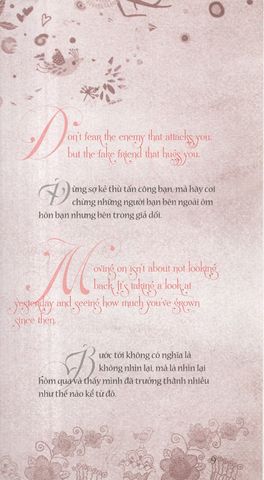 Don't fear the enemy that attacks you,
but the fake friend that hugs you.
Đừng sợ kẻ thù tấn công bạn, mà hãy coi
chừng những người bạn bên ngoài ôm
hôn bạn nhưng bên trong giả dối.
Moving on isn't about not looking
back. It's taking a look at
yesterday and seeing how much you've grown
since then.
Bước tới không có nghĩa là
không nhìn lại, mà là nhìn lại
hôm qua và thấy mình đã trưởng thành nhiều
như thế nào kể từ đó.